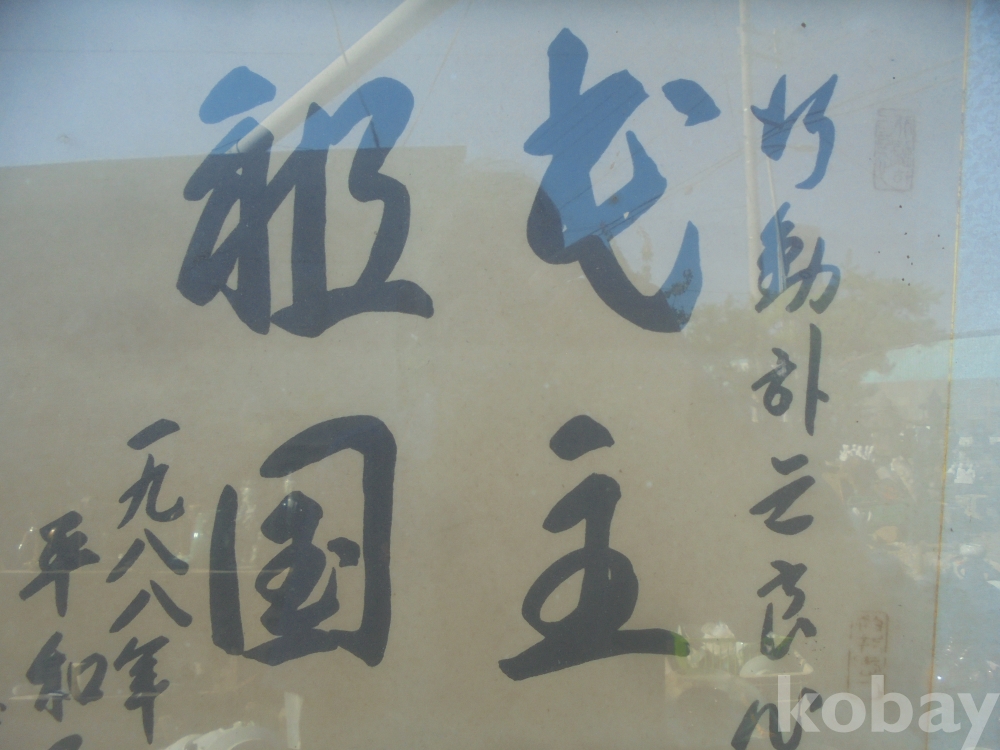 行動하는良心
民主
祖国
一九八八年
平和
kobay